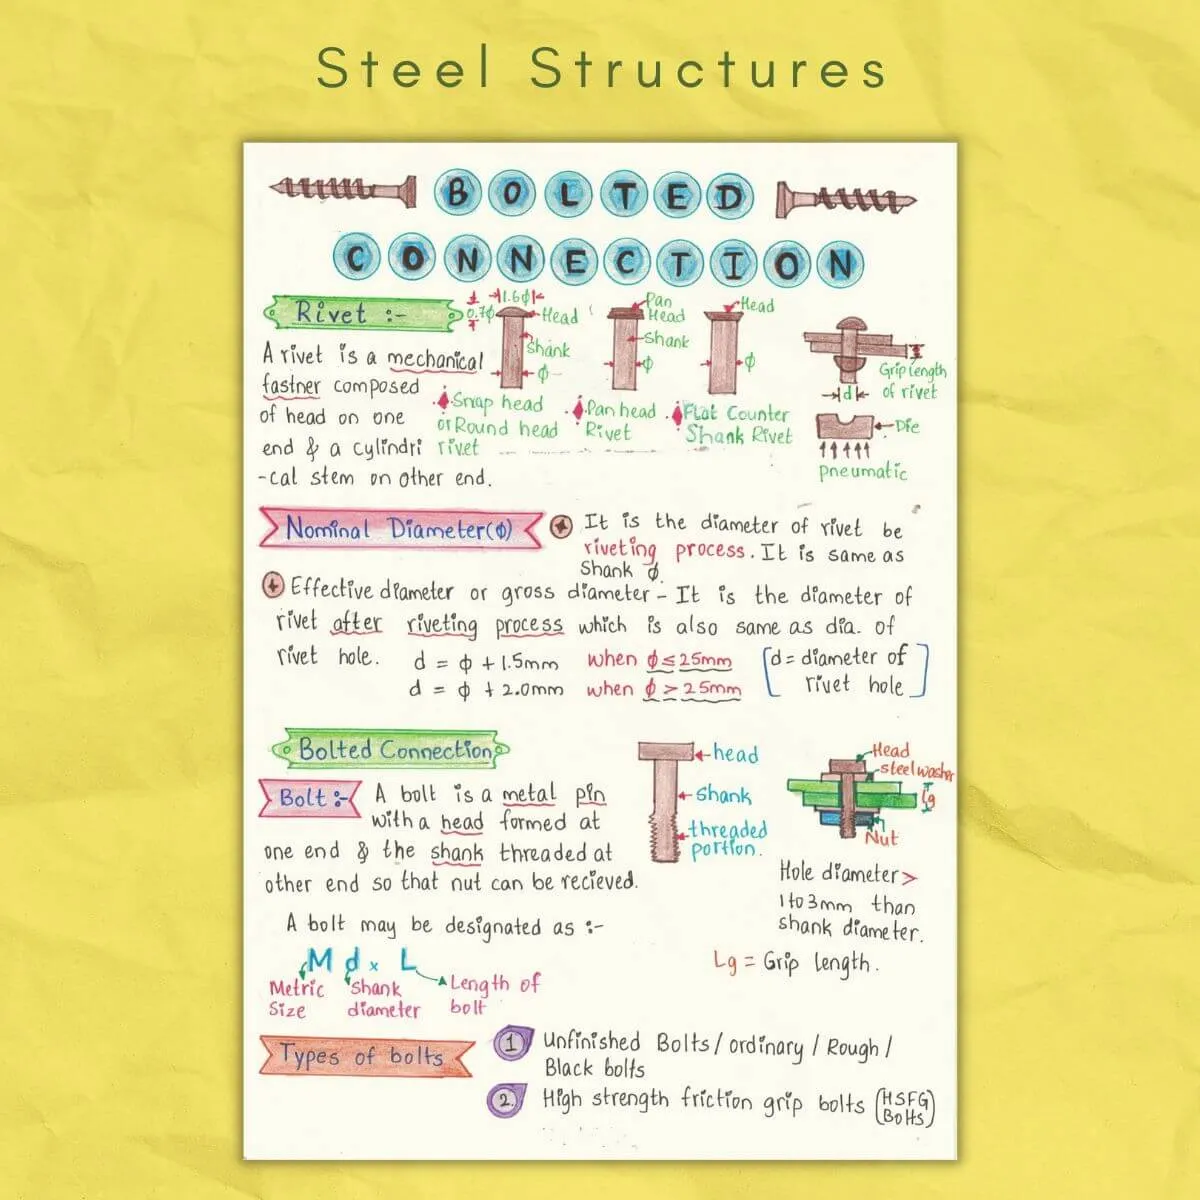 Steel Structures
BOLTED
CONNECTION
Rivet :-
A rivet is a mechanical
fastner composed
of head on one
end & a cylindri
-cal stem on other end.
1.6ϕ
0.7ϕ
Head
Shank
ϕ
Snap head
or Round head
rivet
Pan
Head
Shank
ϕ
Pan head
Rivet
Head
ϕ
Flat Counter
Shank Rivet
Grip length
of rivet
d
Die
pneumatic
Nominal Diameter(ϕ)
It is the diameter of rivet be
riveting process. It is same as
Shank ϕ.
Effective diameter or gross diameter - It is the diameter of
rivet after riveting process which is also same as dia. of
rivet hole.
d = ϕ + 1.5mm when ϕ ≤ 25mm
d = ϕ + 2.0mm when ϕ > 25mm
[d = diameter of
rivet hole]
Bolted Connection
Bolt :-
A bolt is a metal pin
with a head formed at
one end & the shank threaded at
other end so that nut can be recieved.
head
shank
threaded
portion.
Head
steel washer
Lg
Nut
Hole diameter >
1 to 3mm than
shank diameter.
Lg = Grip length.
A bolt may be designated as :-
M d x L
Metric
Size
Shank
diameter
Length of
bolt
Types of bolts
1 Unfinished Bolts / ordinary / Rough /
Black bolts
2. High strength friction grip bolts (HSFG
Bolts)